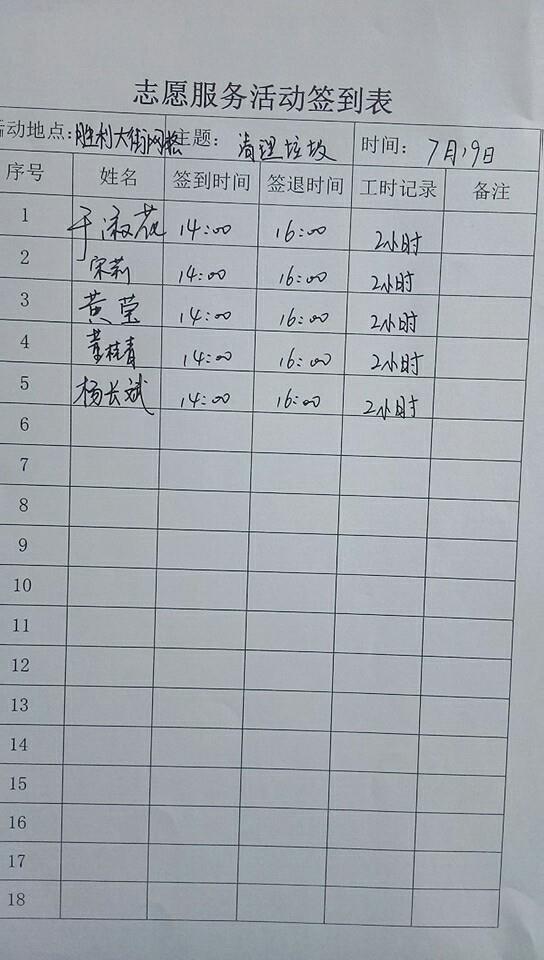 志愿服务活动签到表
活动地点:胜利大街网格 主题: 清理垃圾 时间: 7月19日
序号 姓名 签到时间 签退时间 工时记录 备注
1 于淑花 14:00 16:00 2小时
2 宋莉 14:00 16:00 2小时
3 黄莹 14:00 16:00 2小时
4 董桂青 14:00 16:00 2小时
5 杨长斌 14:00 16:00 2小时
6
7
8
9
10
11
12
13
14
15
16
17
18